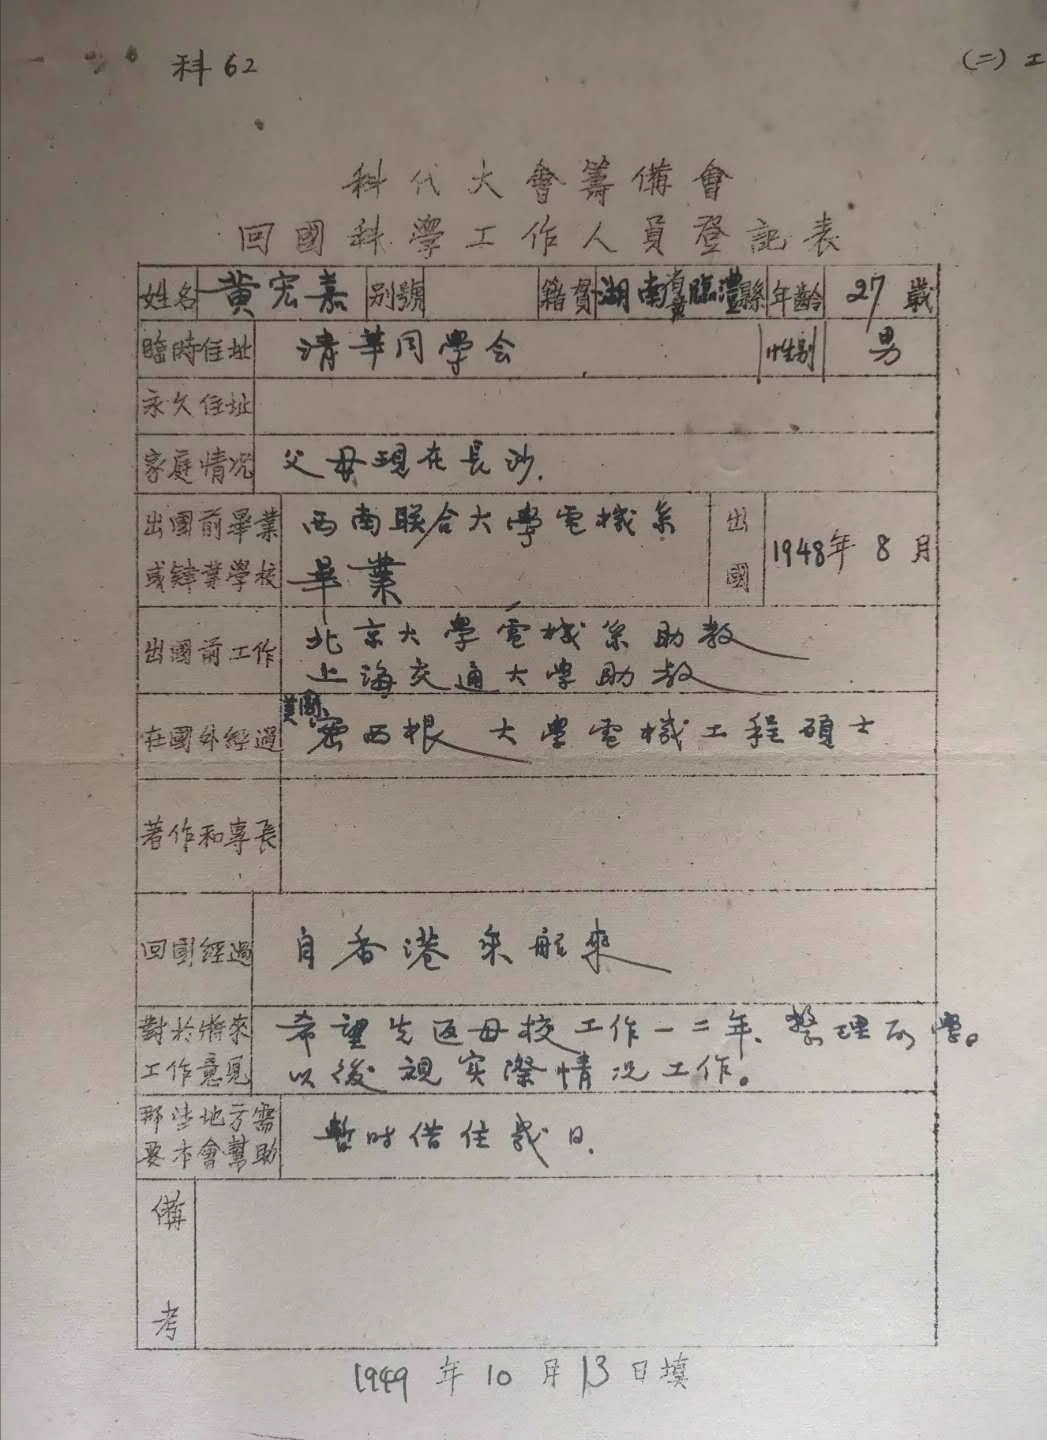 科62
(二)工
科代大會籌備會
回國科學工作人員登記表
姓名 黃宏嘉 别號 籍貫 湖南省臨澧縣 年齡 27 歲
臨時住址 清華同學会 性别 男
永久住址
家庭情况 父母現在長沙.
出國前畢業或肄業學校 西南联合大學電機系
畢業 出國 1948年8月
出國前工作 北京大学電機系助教
上海交通大学助教
在國外經過 美國密西根大學電機工程碩士
著作和專長
回國經過 自香港乘船來
對於將來 希望先返母校工作一二年、整理所學。
工作意見 以後視实際情况工作。
那些地方需
要本會幫助 暫时借住幾日.
備
考
1949年10月13日填